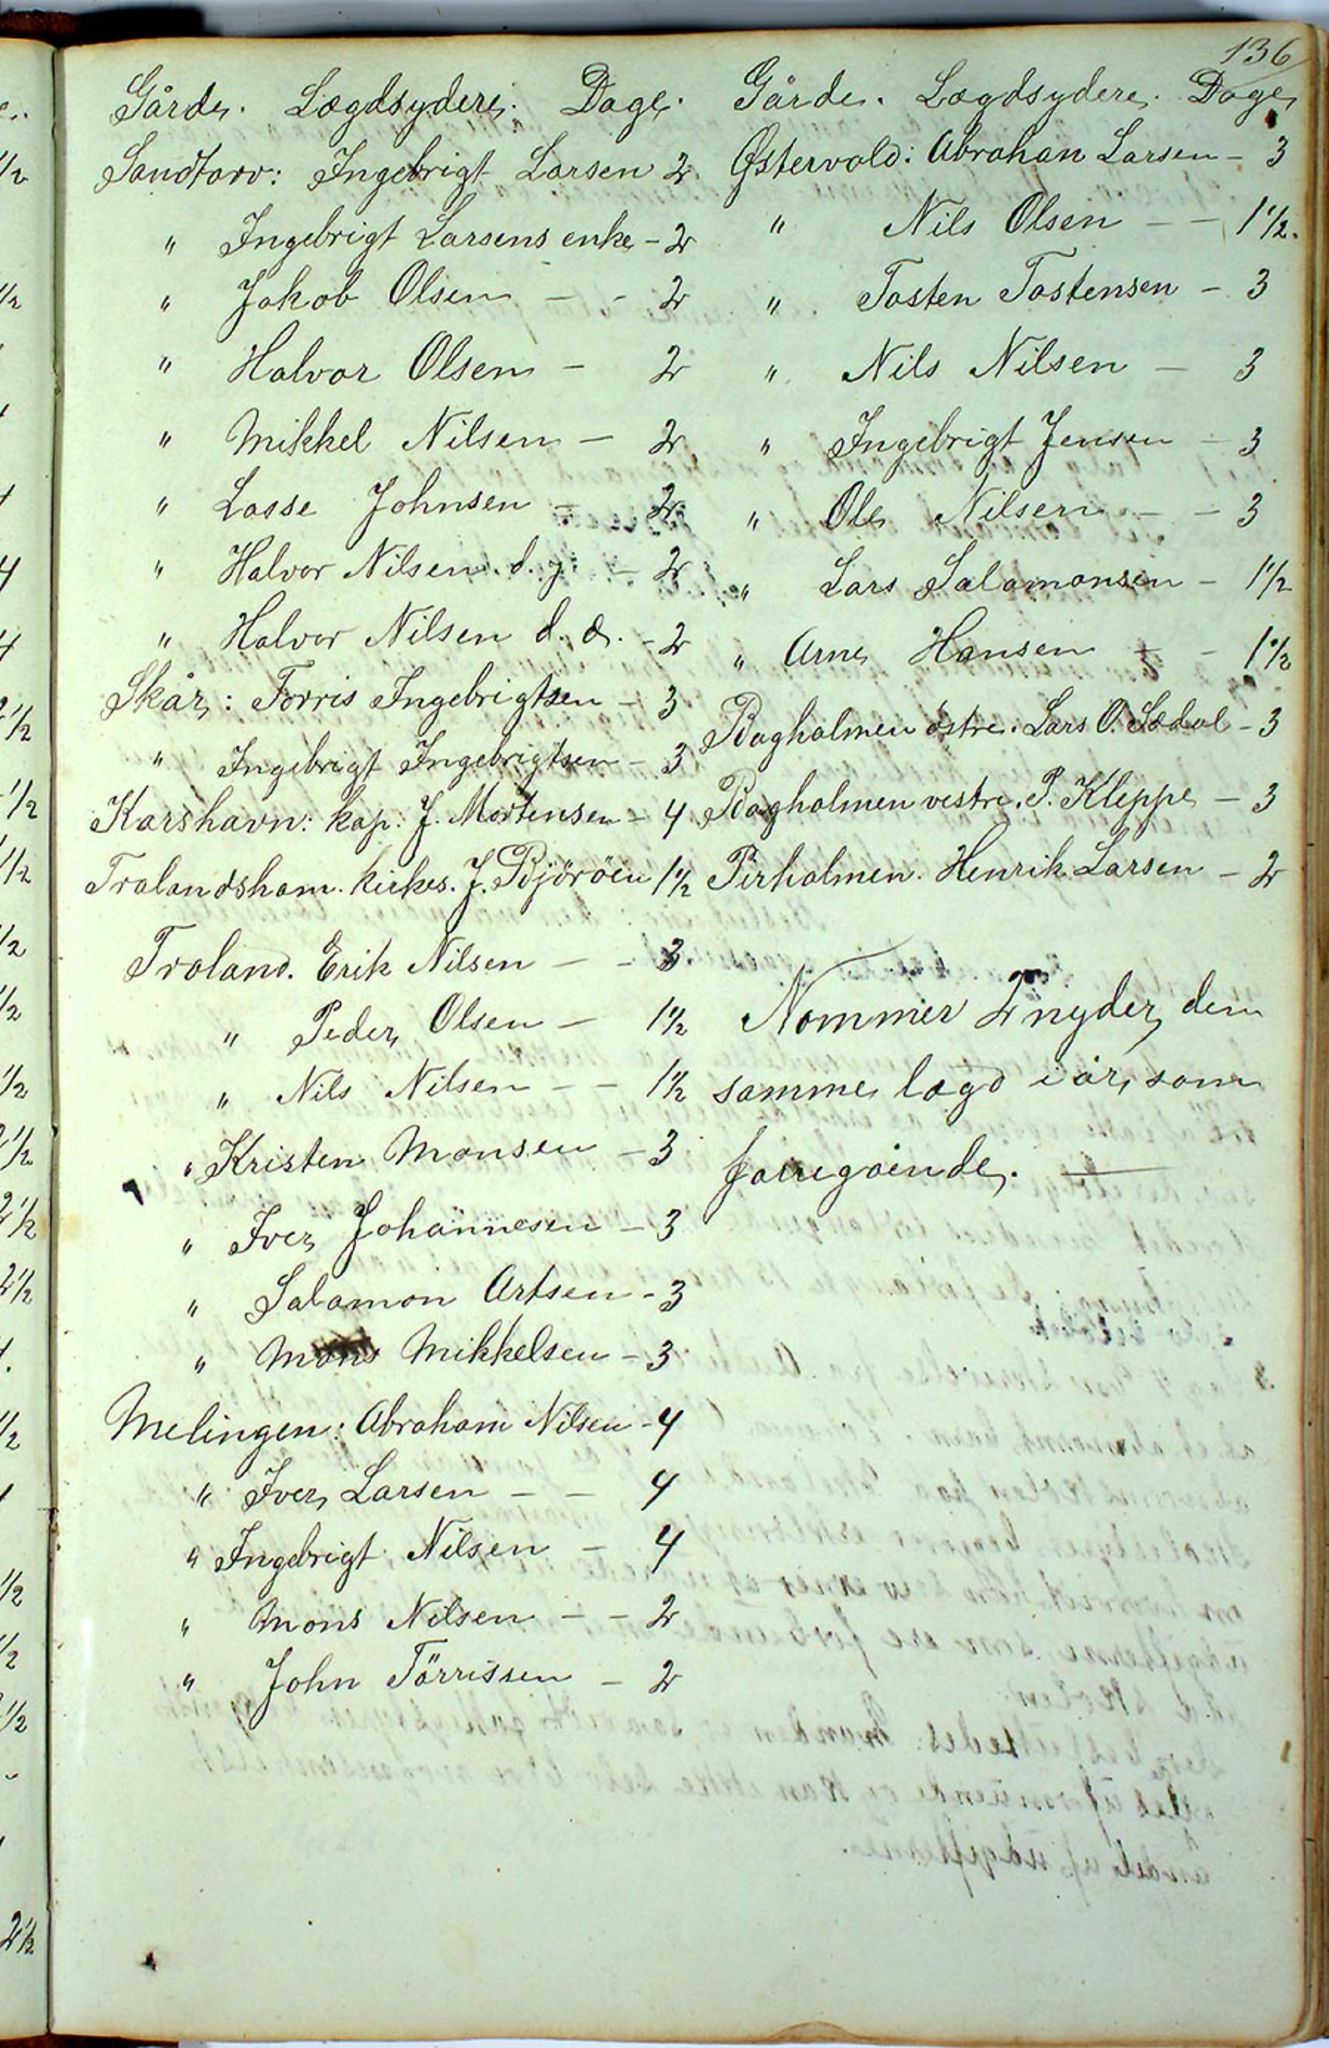 136
Gårde. Lægdsydere. Dage.
Sandtorv: Ingebrigt Larsen 2
" Ingebrigt Larsens enke - 2
" Jakob Olsen - - 2
" Halvor Olsen - 2
" Mikkel Nilsen - 2
" Lasse Johnsen - 2
" Halvor Nilsen d. y. - 2
" Halvor Nilsen d. æ. - 2
Skår: Torris Ingebrigtsen - 3
" Ingebrigt Ingebrigtsen - 3
Karshavn: kap. J. Mortensen - 4
Tralandsham. kirkes. J. Björöen 1 1/2
Traland. Erik Nilsen - - 3
" Peder Olsen - 1 1/2
" Nils Nilsen - - 1 1/2
" Kristen Monsen - 3
" Iver Johannesen - 3
" Salamon Artsen - 3
" Mons Mikkelsen - 3
Melingen: Abraham Nilsen - 4
" Iver Larsen - - 4
" Ingebrigt Nilsen - 4
" Mons Nilsen - - 2
" John Törrissen - 2
Gårde. Lægdsydere. Dage
Østervold: Abraham Larsen - 3
" Nils Olsen - - 1 1/2.
" Tosten Tostensen - 3
" Nils Nilsen - 3
" Ingebrigt Jensen - 3
" Ole Nilsen - - 3
" Lars Salamonsen - 1 1/2
" Arne Hansen - - 1 1/2
Bagholmen östre. Lars O. Sædal - 3
Bagholmen vestre. P. Kleppe - 3
Pirholmen. Henrik Larsen - 2
Nommer 2 nyder den
samme lægd i år, som
forregående. -